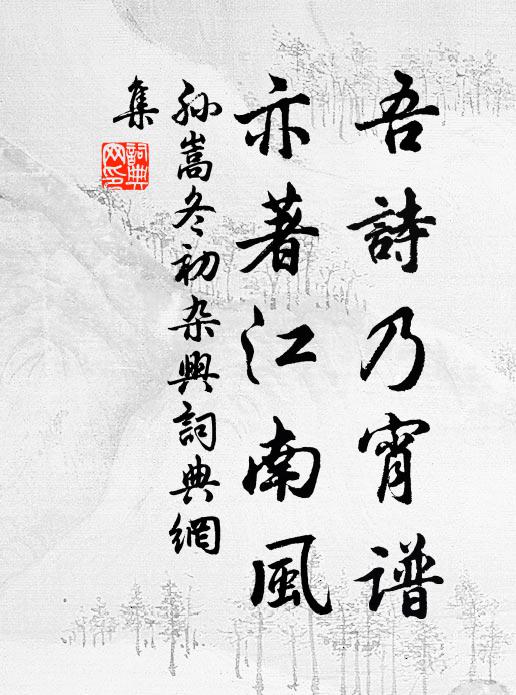 吾詩乃宵谱
亦著江南風
孙嵩冬初杂興詞典網
集
詞典网印